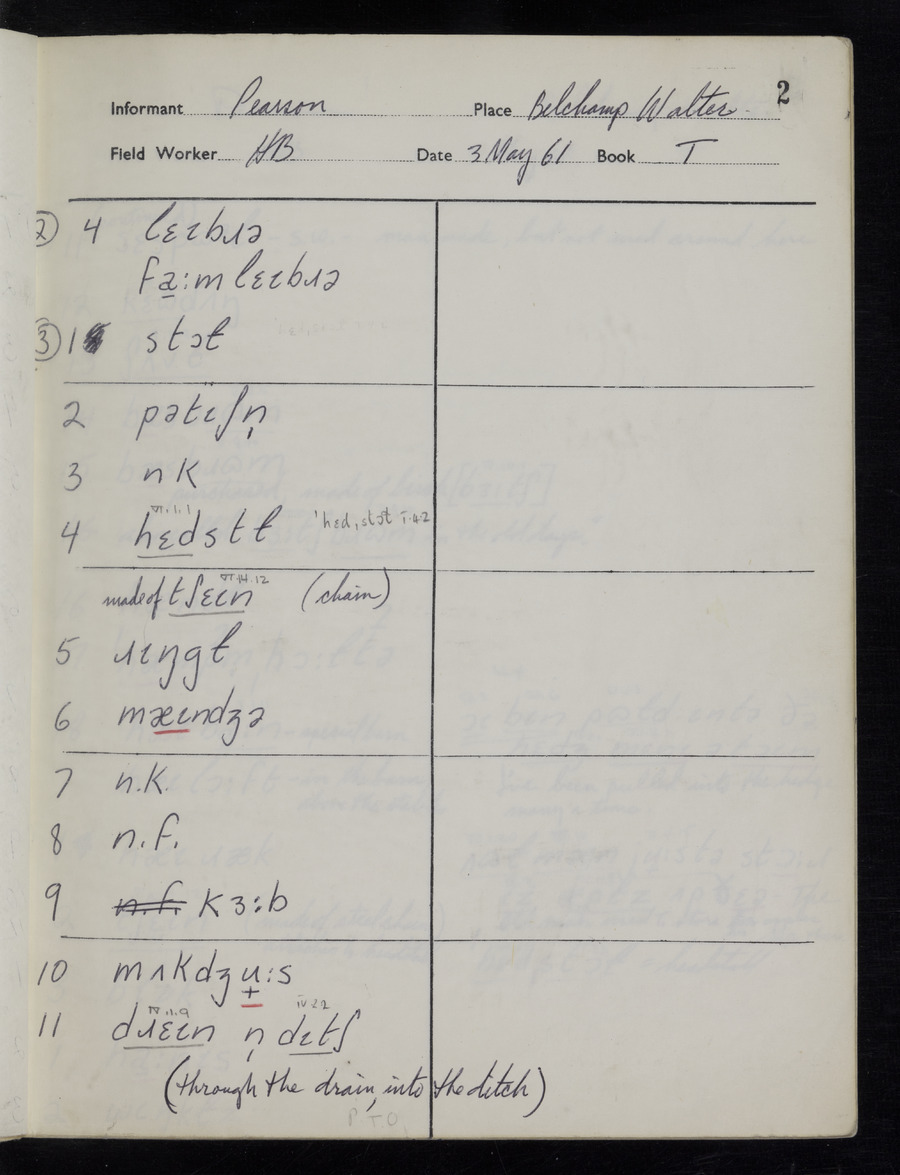 2
Informant Pearson Place Belchamp Walter
Field Worker HB Date 3 May 61 Book I
② 4 lɛɪbɹə
fa̱:m lɛɪbɹə
③ 1 stɔł
2 pətɪʃn̩
3 n K
VI.1.1
4 hɛdstł 'hɛd,stɔł I.4.2
VI.14.12
made of tʃɛɪn (chain)
5 ɹɪŋgł
6 mæɪndʒə
7 n.K.
8 n.f.
9 n.f. Kɜ:b
10 mʌKdʒu̟:s
IV.1.9 IV.2.2
11 dɹɛɪn n̩ dɪtʃ
(through the drain, into the ditch)
P.T.O.